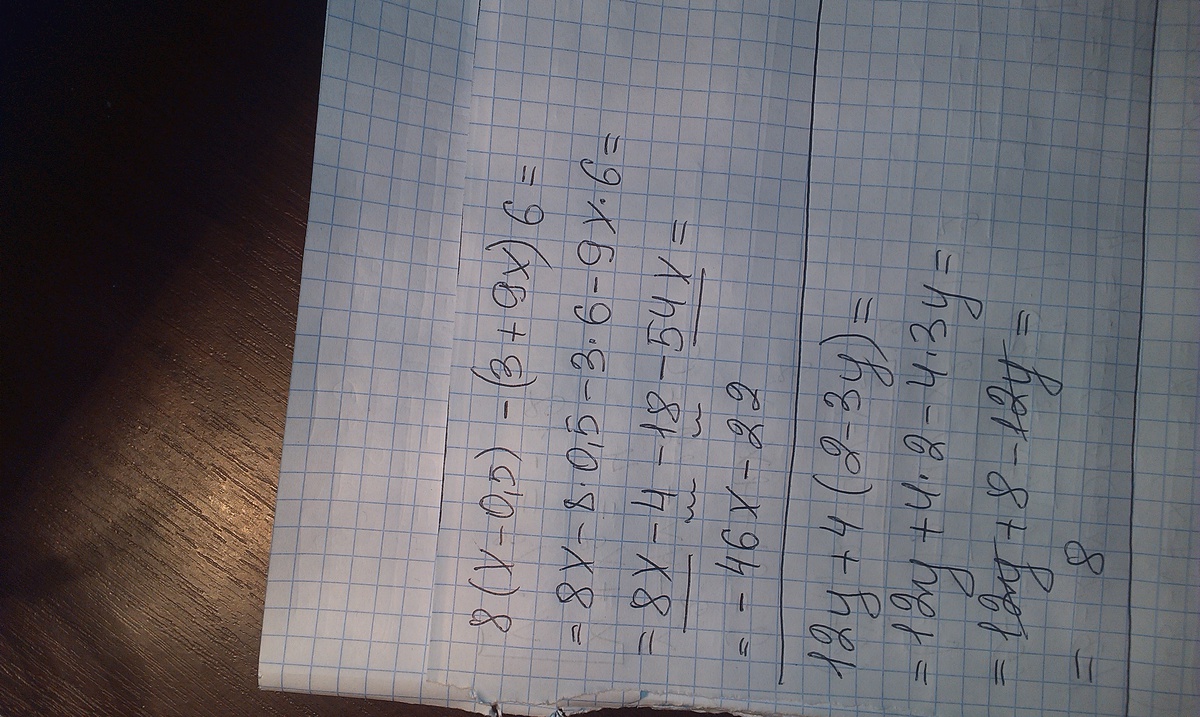 8(x-0,5) -(3+9x)6=
=8x-8·0,5-3·6-9x·6=
=8x-4-18-54x=
=-46x-22
12y+4(2-3y)=
=12y+4·2-4·3y=
=12y+8-12y=
= 8